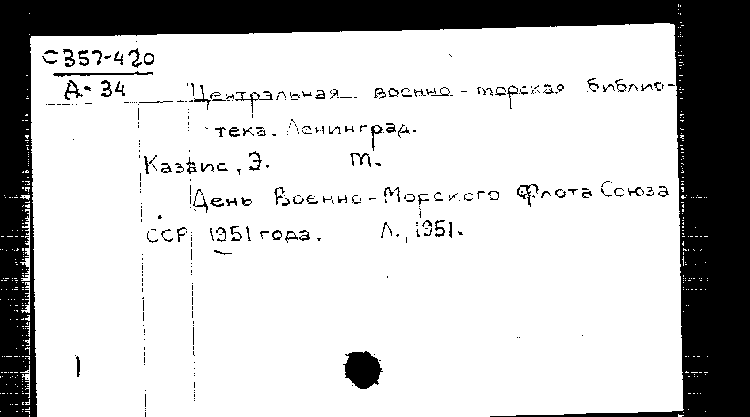 С357-420
А-34
Центральная военно-морская библио-
тека. Ленинград.
Казаис, Э. М.
День Военно-Морского Флота Союза
ССР 1951 года. Л., 1951.
1